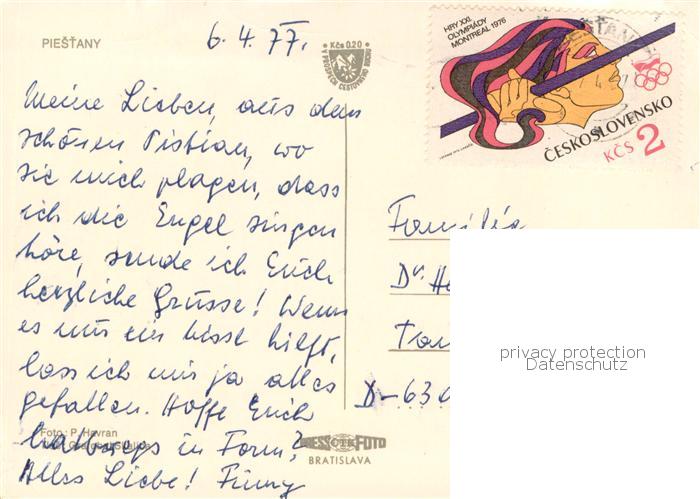 PIEŠŤANY
6.4.77.
Kčs 0.20
HRY XXI.
OLYMPIÁDY
MONTREAL 1976
ČESKOSLOVENSKO
KČS 2
Meine Lieben, aus dem
schönen Pistian, wo
sie mich plagen, dass
ich die Engel singen
höre, sende ich Euch
herzliche Grüsse! Wenn
es nur ein bissl hilft,
lass ich mir ja alles
gefallen. Hoffe Euch
halbwegs in Form?
Alles Liebe! Finny
Familie
Dr. He
D-630
Foto: P. Havran
PRESSFOTO
BRATISLAVA
privacy protection
Datenschutz